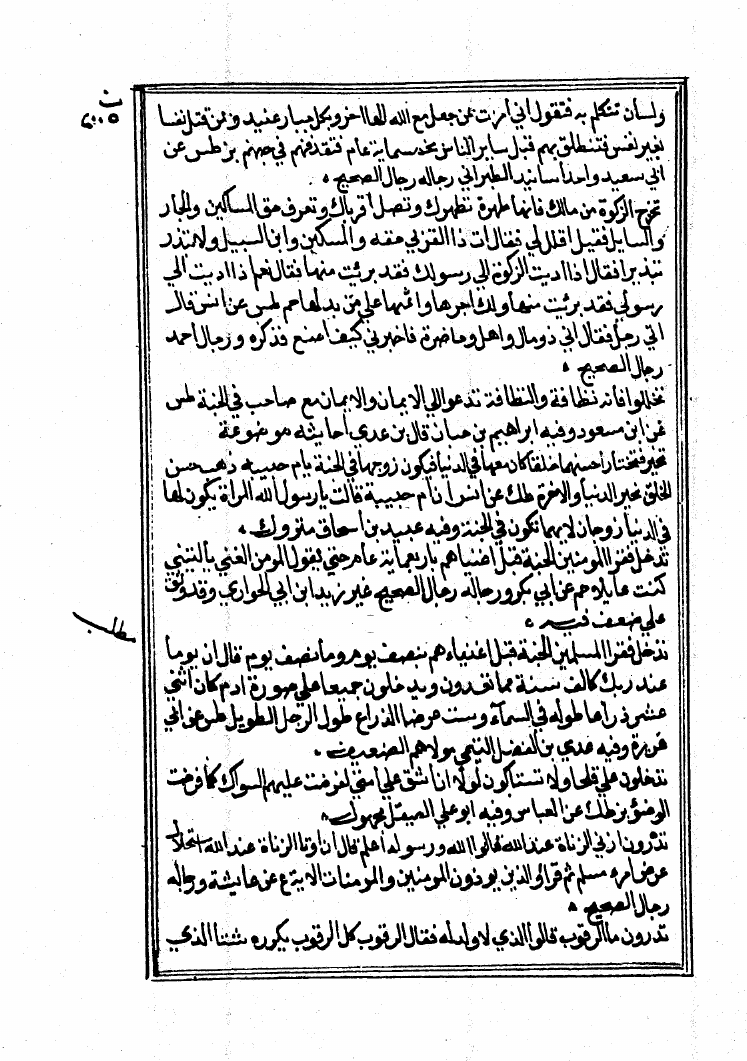 ولسان تتكلم به فتقول اني امرت بمن جعل مع الله الها اخر وبكل جبار عنيد ومن قتل نفسا
بغير نفس فتنطلق بهم قبل ساير الناس بخمسماية عام فتقذفهم في جهنم بز طس عن
ابي سعيد واحد اسانيد الطبراني رجاله رجال الصحيح
تخرج الزكوة من مالك فانها طهرة تطهرك وتصل أقرباك وتعرف حق المساكين والجار
والسايل فقيل اقلل لي فقال ات ذا القربي حقه والمسكين وابن السبيل ولا تبذر
تبذيرا فقال اذا اديت الزكوة الي رسولك فقد برئيت منها فقال نعم اذا اديت الي
رسولي فقد برئيت منها ولك اجرها واثمها علي من بدلها حم طس عن انس قال
اتي رجل فقال اني ذو مال واهل وحاضرة فاخبرني كيف اصنع فذكره ورجال احمد
رجال الصحيح
تخللوا فانه نظافة والنظافة تدعوا الي الايمان والايمان مع صاحب في الجنة طس
عن ابن مسعود وفيه ابراهيم بن حبان قال بن عدي احاديثه موضوعة
تخير فتختار أحسنهما خلقا كان معها في الدنيا فيكون زوجها في الجنة يام حبيبه ذهب حسن
الخلق بخير الدنيا والاخرة طك عن انس ان ام حبيبة قالت يا رسول الله المراة يكون لها
في الدنيا زوجان لايهما تكون في الجنة وفيه عبيد بن اسحاق متروك
تدخل فقرا المومنين الجنة قبل اغنياهم باربعماية عام حتي يقول المومن الغني ياليتني
كنت عايلا حم عن ابي بكر ورجاله رجال الصحيح غير زيد ابن ابي الحواري وقد وثق
علي ضعف فيه
تدخل فقرا المسلمين الجنة قبل اغنياءهم بنصف يوم وما نصف يوم قال ان يوما
عند ربك كالف سنة مما تعدون ويدخلون جميعا علي صورة ادم كان اثني
عشر ذراعا طوله في السمآء وست عرضا الذراع طول الرجل الطويل طس عن ابي
هريرة وفيه عدي بن الفضل التيمي مولاهم الضعيف
تدخلون علي قلحا ولا تستاكون لولا ان اشق علي امتي لفرضت عليهم السواك كما فرضت
الوضؤ بز طك عن العباس وفيه ابو علي الصيقل مجهول
تدرون ازني الزناة عند الله قالوا الله ورسوله اعلم قال ان ازنا الزناة عند الله استحلال
عرض امره مسلم ثم قرا والذين يوذون المومنين والمومنات الاية ع عن عايشة ورجاله
رجال الصحيح
تدرون ما الرقوب قالوا الذي لا ولد له فقال الرقوب كل الرقوب يكرره ثلثا الذي
مطلب